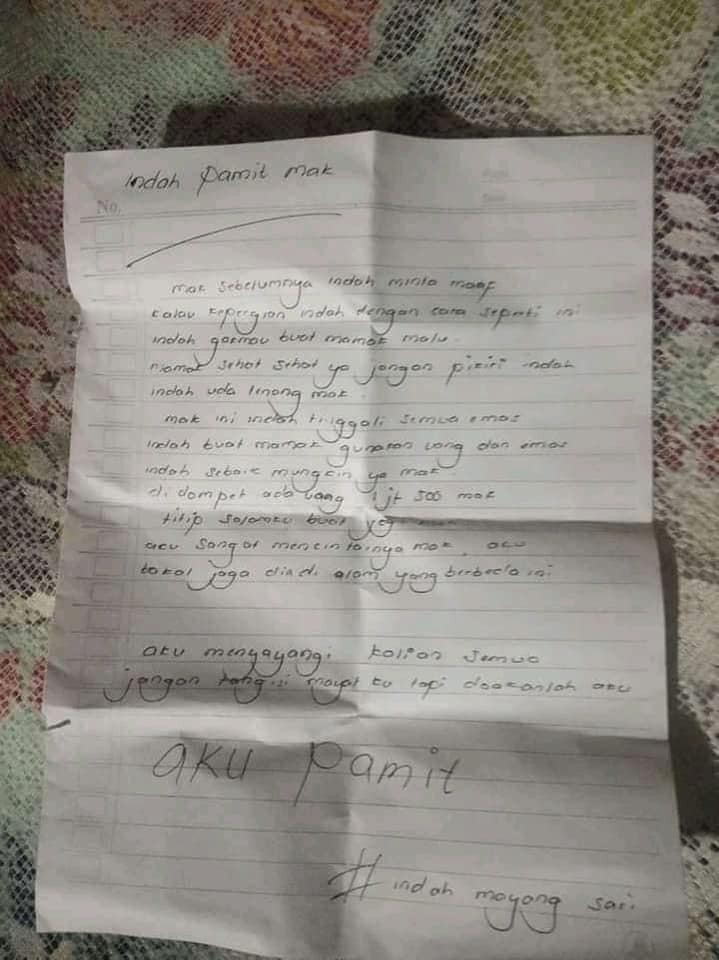 Indah Pamit mak
No.
mak sebelumnya indah minta maaf
kalau kepergian indah dengan cara seperti ini
indah gakmau buat mamak malu.
mamak sehat sehat ya jangan pikiri indah
indah uda tenang mak.
mak ini indah tinggali semua emas
indah buat mamak gunakan uang dan emas
indah sebaik mungkin ya mak.
di dompet ada uang 1 jt 500 mak
titip salamku buat
aku sangat mencintainya mak, aku
bakal jaga dia di alam yang berbeda ini
aku menyayangi kalian semua
jangan tangisi mayat ku tapi doakanlah aku
aku Pamit
# indah mayang sari